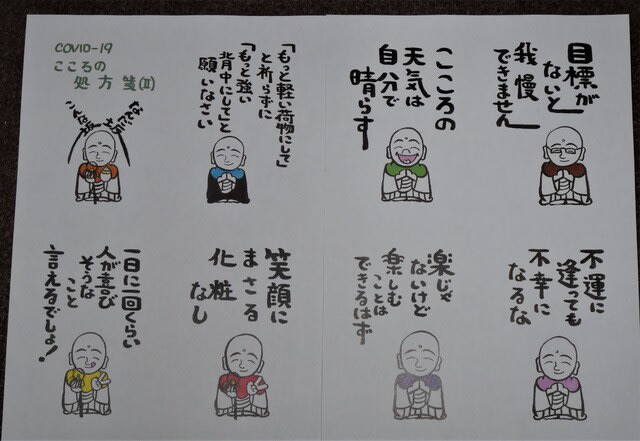 COVID-19
こころの
処方箋(II)
なんだ坂
こんな坂
「もっと軽い荷物にして」
と祈らずに
「もっと強い
背中にして」と
願いなさい
こころの
天気は
自分で
晴らす
目標が
ないと
我慢
できません
一日に一回くらい
人が喜び
そうな
こと
言えるでしょ!
笑顔に
まさる
化粧
なし
楽じゃ
ないけど
楽しむ
ことは
できるはず
不運に
逢っても
不幸に
なるな